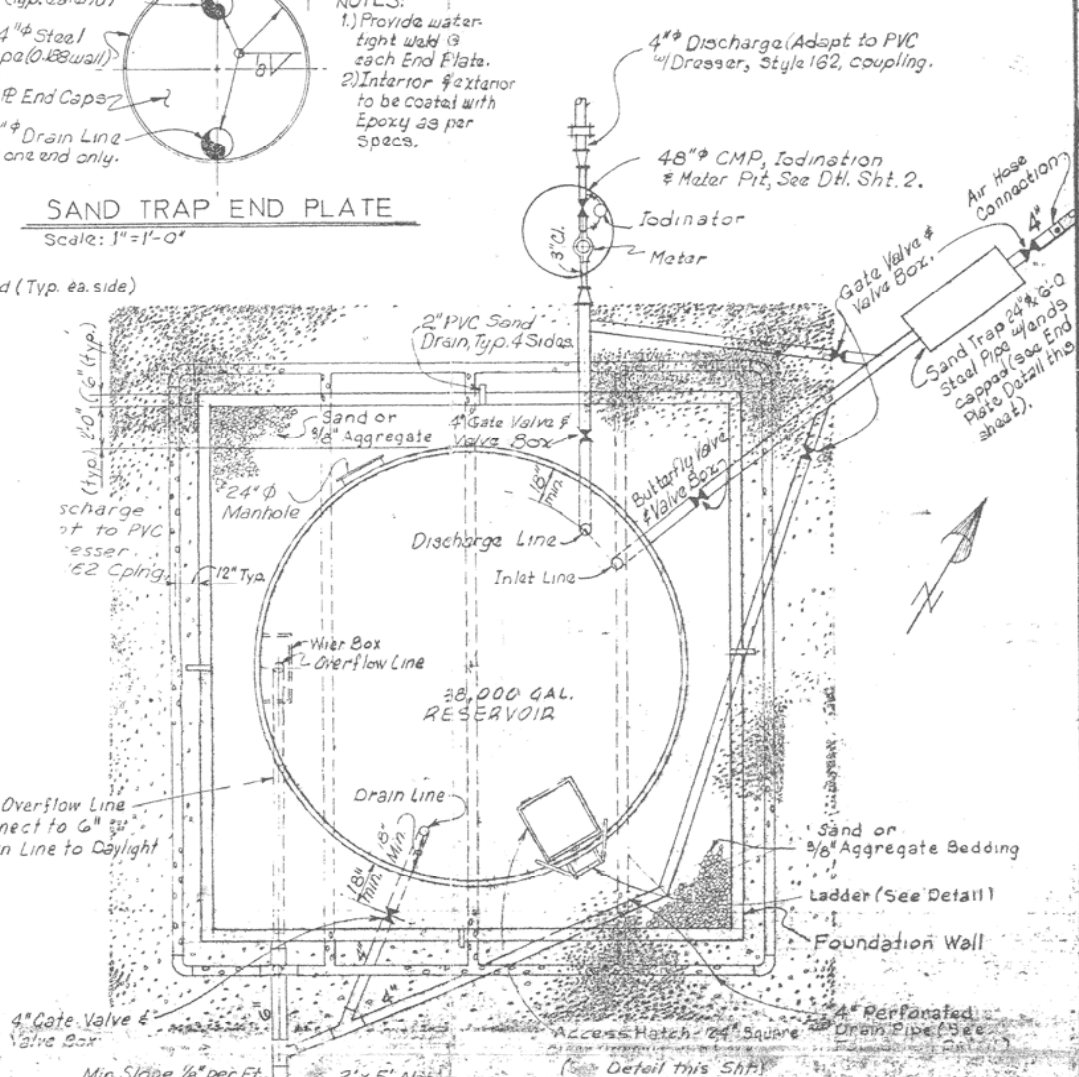 4"ᶲ Steel
(0.188 wall)
8
℄ End Caps
"ᶲ Drain Line
one end only.
NOTES:
1.) Provide water-
tight weld @
each End Plate.
2) Interior & exterior
to be coated with
Epoxy as per
Specs.
SAND TRAP END PLATE
Scale: 1"=1'-0"
4"ᶲ Discharge (Adapt to PVC
w/Dresser, Style 162, coupling.
48"ᶲ CMP, Iodination
& Meter Pit, See Dtl. Sht. 2.
Iodinator
Meter
3" Cl.
Air Hose
Connection
4"
Gate Valve &
Valve Box.
Sand Trap 24"ᶲ x 6'-0
Steel Pipe w/ends
capped (see End
Plate Detail this
sheet).
(Typ. ea. side)
6" (typ.)
2'-0"
(typ.)
2" PVC Sand
Drain, Typ. 4 Sides.
Sand or
3/8" Aggregate
4" Gate Valve &
Valve Box
24" ᶲ
Manhole
18"
min.
Butterfly Valve
& Valve Box
Discharge Line
Inlet Line
to PVC
Cplng.
12" Typ.
Wier Box
Overflow Line
38,000 GAL.
RESERVOIR
Overflow Line
to 6"
Line to Daylight
Drain Line
18"
Min.
18"
min.
Sand or
3/8" Aggregate Bedding
Ladder (See Detail)
Foundation Wall
4"
4"
6"
4" Gate Valve &
Valve Box
Access Hatch - 24" Square
4" Perforated
Drain Pipe (See
Min. Slope 1/8" per Ft.
Detail this Sht.)
N